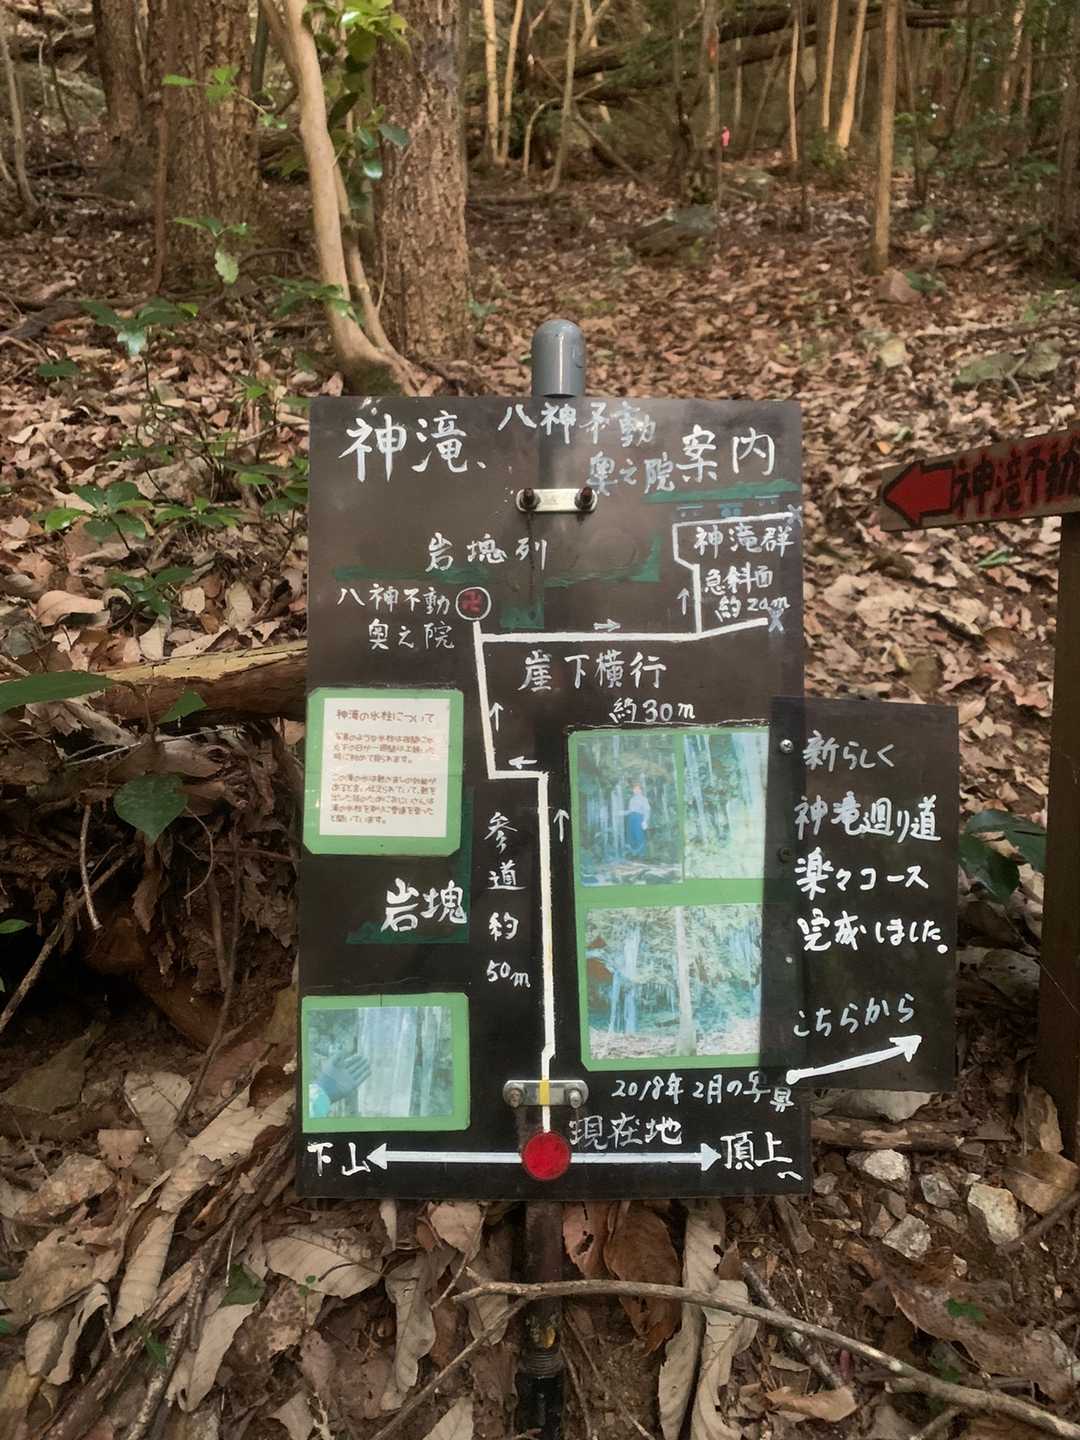 神滝、
八神不動
奥之院
案内
神滝群
急斜面
約20m
岩塊列
八神不動
奥之院
崖下横行
約30m
神滝の氷柱について
参道約50m
岩塊
新らしく
神滝廻り道
楽々コース
完成しました。
こちらから
2018年2月の写真
現在地
下山
頂上へ
神滝不動